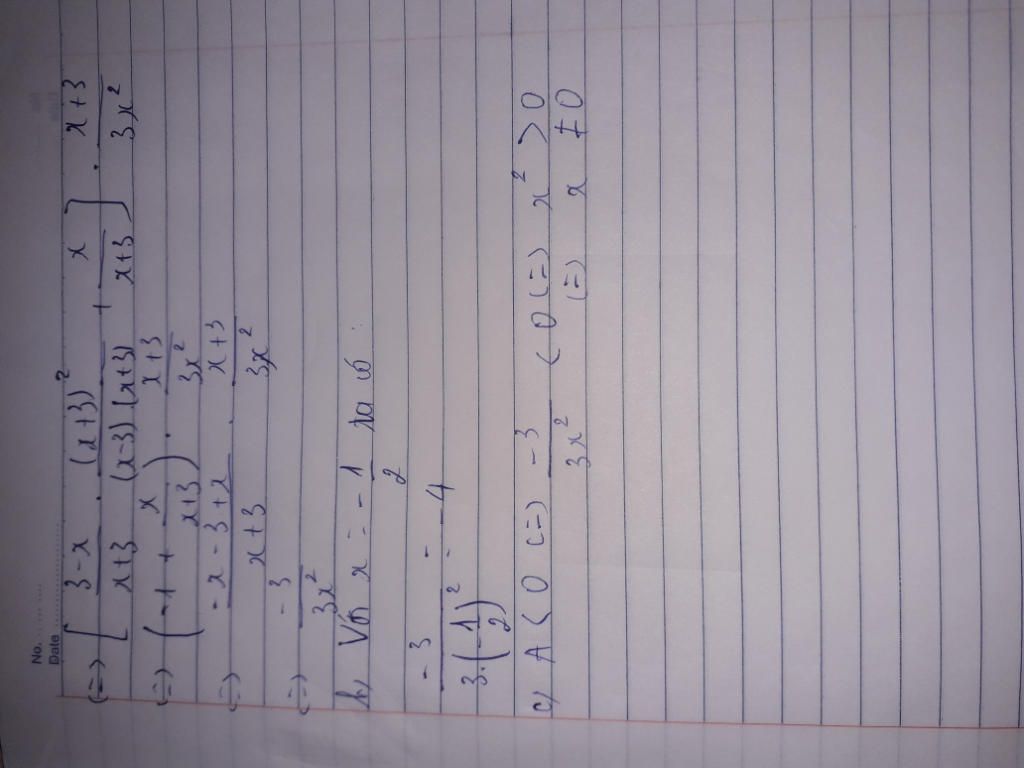 No. ............
Date ........................
(=) [ (3-x)/(x+3) . (x+3)²/((x-3)(x+3)) + x/(x+3) ] . (x+3)/(3x²)
(=) ( -1 + x/(x+3) ) . (x+3)/(3x²)
(=) (-x-3+x)/(x+3) . (x+3)/(3x²)
(=) -3/(3x²)
b, Với x = -1/2 ta có :
-3/(3.(-1/2)²) = -4
c) A < 0 (=) -3/(3x²) < 0 (=) x² > 0
(=) x ≠ 0